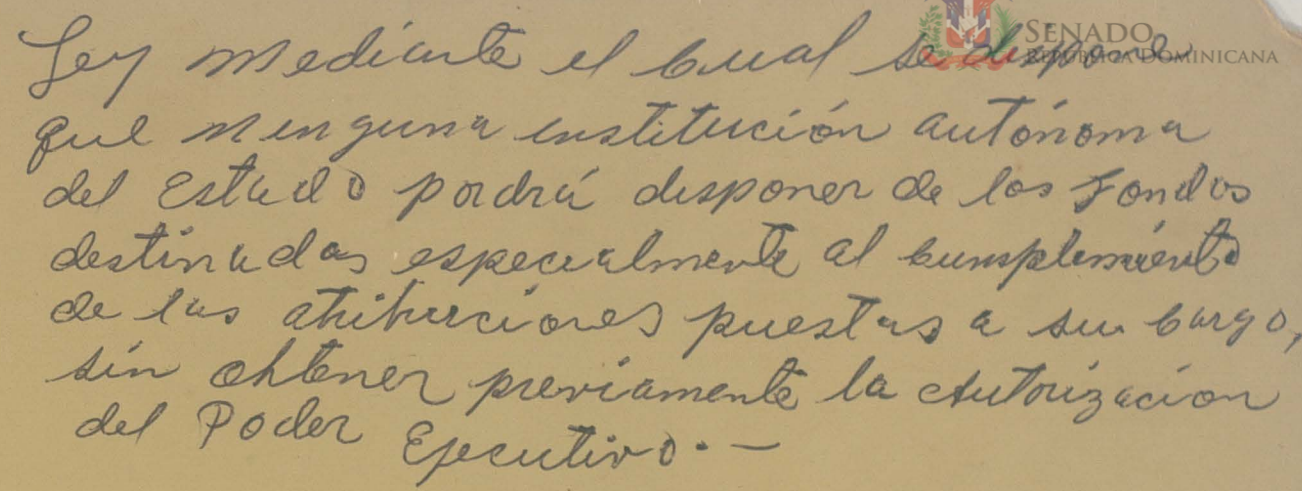 SENADO
REPÚBLICA DOMINICANA
Ley mediante el cual se dispone
que ninguna institución autónoma
del Estado podrá disponer de los Fondos
destinados especialmente al cumplimiento
de las atribuciones puestas a su cargo,
sin obtener previamente la autorización
del Poder Ejecutivo.—